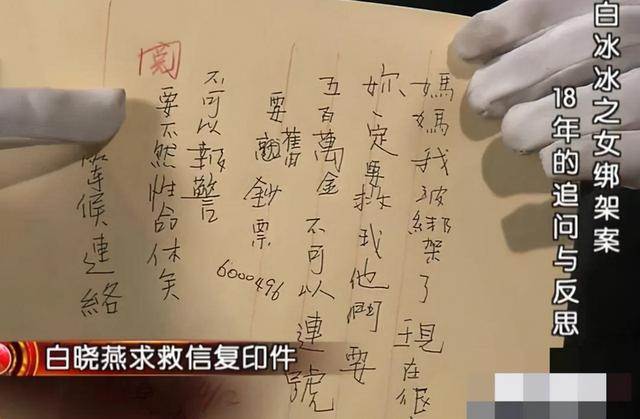 白冰冰之女绑架案
18年的追问与反思
媽媽我被綁架了 現在很
妳一定要救我他們要
五百萬金 不可以連號
要舊鈔票
6000496
不可以報警
要不然性命休矣
閱
等候連絡
白晓燕求救信复印件